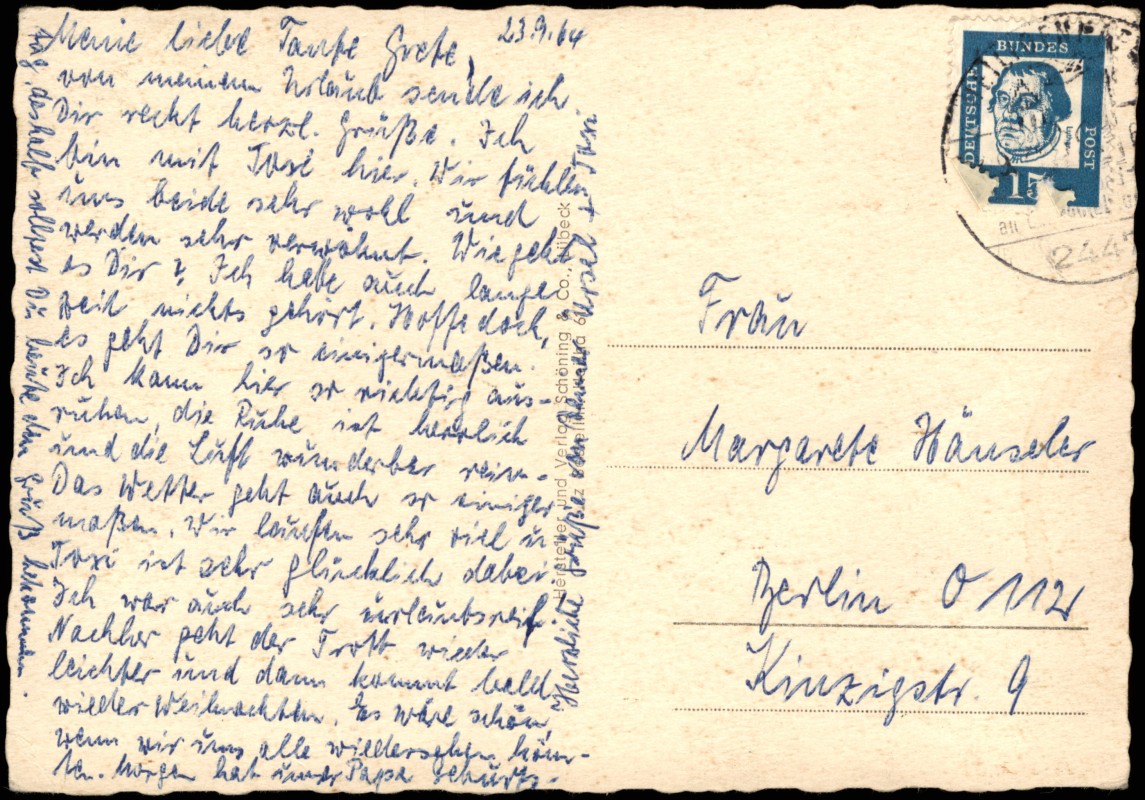 23.9.64
Meine liebe Tante Grete,
von meinem Urlaub sende ich
Dir recht herzl. Grüße. Ich
bin mit Tosi hier. Wir fühlen
uns beide sehr wohl und
werden sehr verwöhnt. Wie geht
es Dir? Ich habe auch lange
Zeit nichts gehört. Hoffe doch,
es geht Dir so einigermaßen.
Ich kann hier so richtig aus-
ruhen, die Ruhe ist herrlich
und die Luft wunderbar rein.
Das Wetter geht auch so einiger
maßen. Wir laufen sehr viel u.
Tosi ist sehr glücklich dabei
Ich war auch sehr urlaubsreif.
Nachher geht der Trott wieder
leichter und dann kommt bald
wieder Weihnachten. Es wäre schön,
wenn wir uns alle wiedersehen könn-
ten. Morgen hat unser Papa Geburts-
tag, deshalb sollst Du heute den Gruß bekommen.
Herzliche Grüße von Deiner Ursel + Tosi
Hersteller und Verlag Schöning & Co., Lübeck
DEUTSCHE
BUNDES
POST
15
244
Frau
Margarete Hänseler
Berlin O 112
Kinzigstr. 9